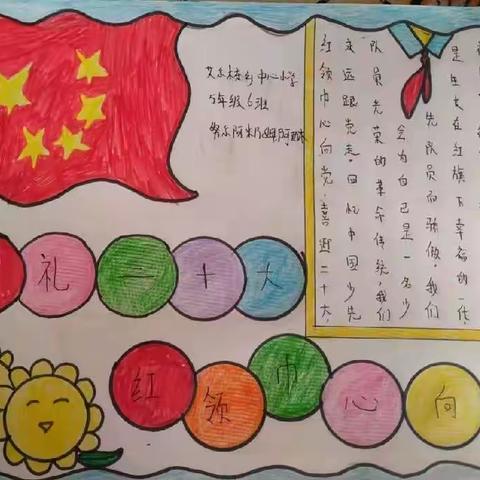 中心小学
5年级6班
红领巾心向党,喜迎二十大,
永远跟党走。回忆中国少先
队员光荣的革命传统,我们
会为自己是一名少
先队员而骄傲。我们
是生长在红旗下幸福的一代,
礼二十大
红领巾心向